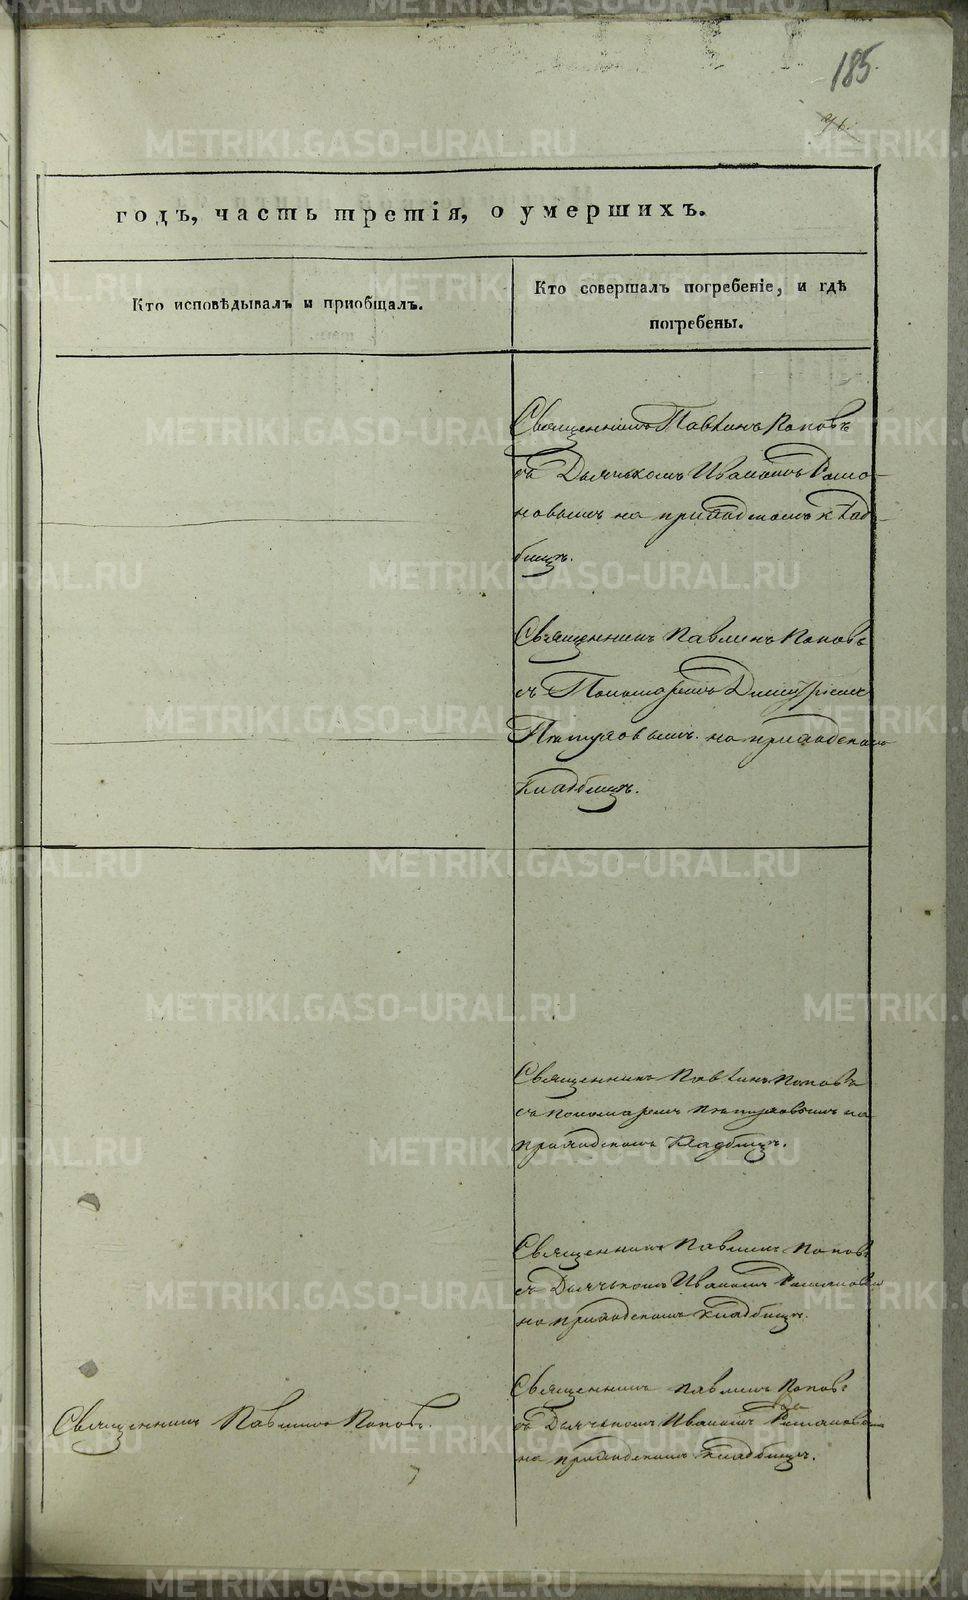 185
годъ, часть третія, о умершихъ.
Кто исповѣдывалъ и пріобщалъ.
Кто совершалъ погребеніе, и гдѣ
погребены.
Священникъ Павлинъ Поповъ
съ Дьячькомъ Иваномъ Рома-
новымъ на приходскомъ клад-
бищѣ.
Священникъ Павлинъ Поповъ
съ Пономаремъ Димитріемъ
на приходскомъ
кладбищѣ.
Священникъ Павлинъ Поповъ
съ пономаремъ на
приходскомъ кладбищѣ.
Священникъ Павлинъ Поповъ
съ Дьячькомъ Иваномъ Романовым
на приходскомъ кладбищѣ.
Священникъ Павлинъ Поповъ.
Священникъ Павлинъ Поповъ
съ Дьячькомъ Иваномъ Романовым
на приходскомъ кладбищѣ.
METRIKI.GASO-URAL.RU